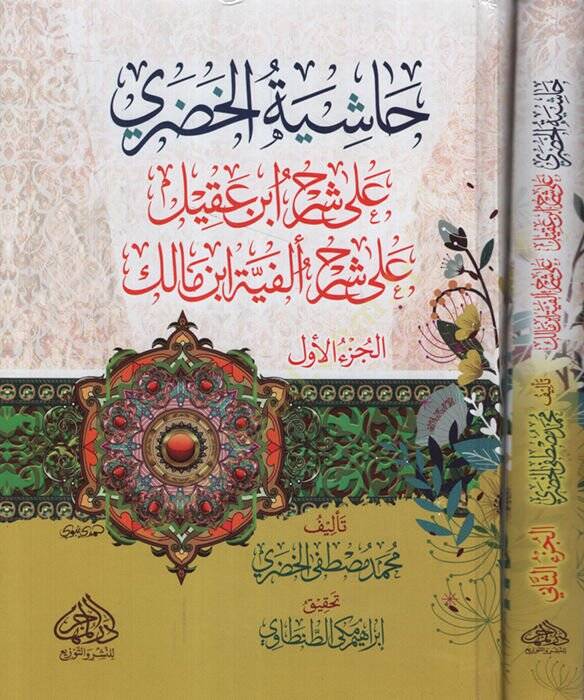 حاشية الخضري
على شرح ابن عقيل
على شرح ألفية ابن مالك
الجزء الأول
تأليف
محمد مصطفى الخضري
تحقيق
ابراهيم مكي الطنطاوي
للنشر والتوزيع
حاشية الخضري
على شرح ابن عقيل على شرح ألفية ابن مالك
تأليف
محمد مصطفى الخضري
الجزء الثاني
للنشر والتوزيع